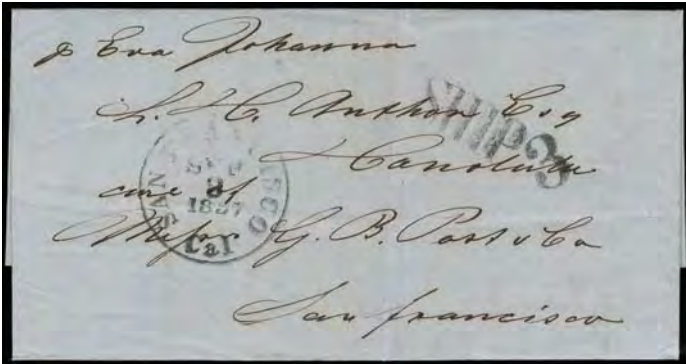 p Eva Johanna
L. H. Anthon Esq
Honolulu
care of
Messrs G. B. Post & Co
San francisco
SHIP 3
SAN FRANCISCO
SEP
3
1857
Cal